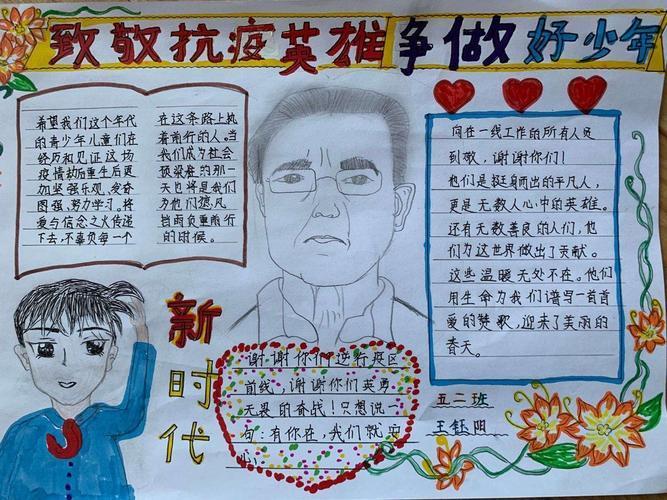 致敬抗疫英雄 争做好少年
希望我们这个年代
的青少年儿童们在
经历和见证这场
疫情劫后重生后更
加坚强乐观、发奋
图强、努力学习。将
爱与信念之火传递
下去,不辜负每一个
在这条路上执
着前行的人。当
我们成为社会
顶梁柱的那一
天也将是我们
为他们遮风
挡雨负重前行
的时候。
向在一线工作的所有人员
致敬,谢谢你们!
他们是挺身而出的平凡人,
更是无数人心中的英雄。
还有无数善良的人们,他
们为这世界做出了贡献。
这些温暖无处不在。他们
用生命为我们谱写一首首
爱的赞歌,迎来了美丽的
春天。
新时代
谢谢你们逆行疫区
前线,谢谢你们英勇
无畏的奋战!只想说一
句:有你在,我们就安
心
五二班
王钰阳